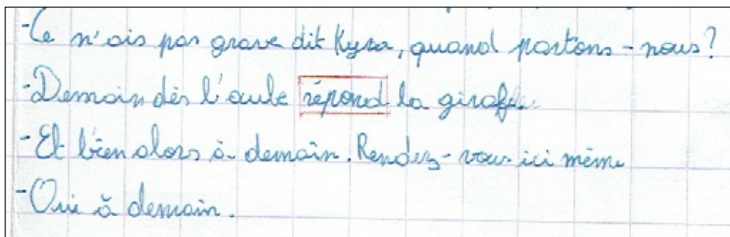 -Ce n'ais pas grave dit Kyra, quand partons-nous?
-Demain dès l'aube répond la girafe.
-Et bien alors à demain. Rendez-vous ici même
-Oui à demain.